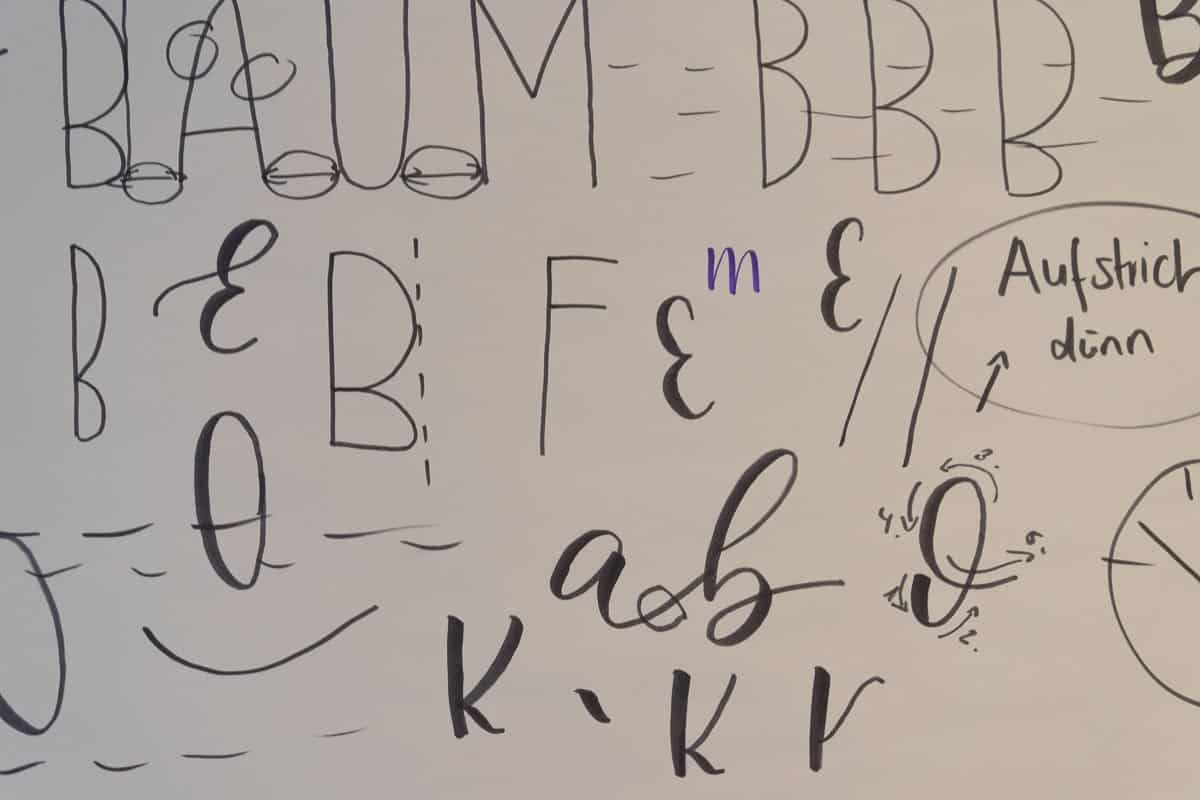 BAUM B B B B
B E B F E m E Aufstrich
dünn
O
ab O
3.
4.
5.
1.
2.
K K